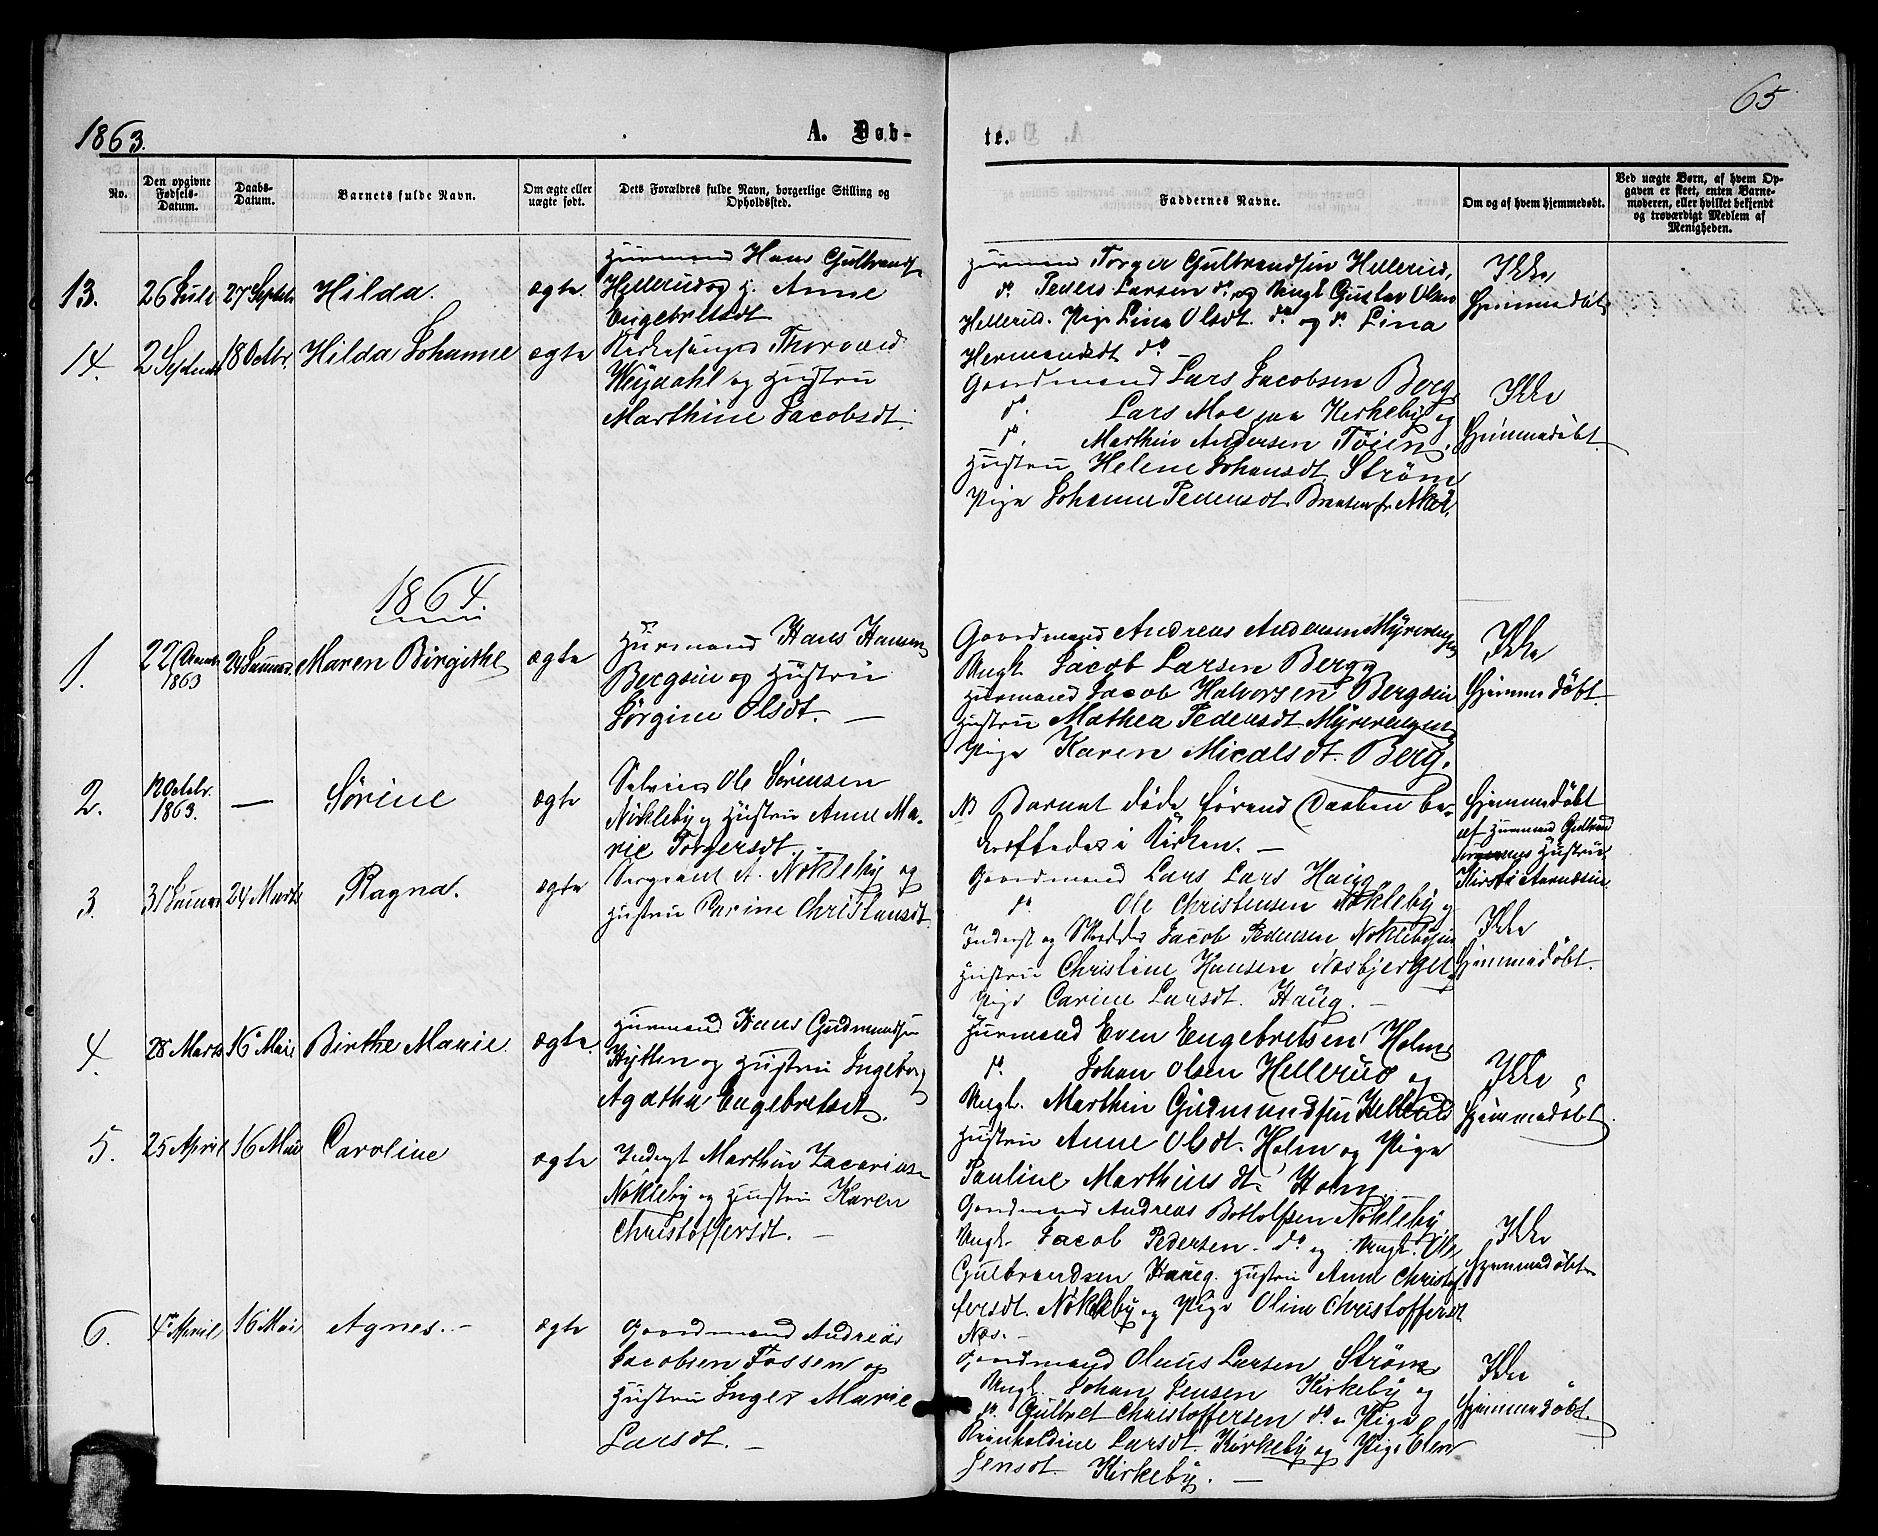 65
1863.
A. Døb-
te.
No.
Den opgivne Fødsels-Datum.
Daabs-Datum.
Barnets fulde Navn.
Om ægte eller uægte født.
Dets Forældres fulde Navn, borgerlige Stilling og Opholdssted.
Faddernes Navne.
Om og af hvem hjemmedøbt.
Ved uægte Børn, af hvem Opgaven er skeet, enten Barnemoderen, eller hvilket bekjendt og troværdigt Medlem af Menigheden.
13. 26 Juli 27 Septbr Hilda. ægte
Huusmand Hans Gulbrands.
Hellerud og H. Anne
Engebretsdt
Huusmand Torger Gulbrandsen Hellerud,
do. Peders Larsen do. og Ungk. Gustav Olsen
Hellerud. Pige Lina Olsdt. do. og do. Lina
Hermansdt do.
Ikke
Hjemmedøbt
14. 2 Septembr 18 Octbr. Hilda Johanne ægte
Kirkesanger Thorvald
Weydahl og Hustru
Marthine Jacobsdt.
Gaardmand Lars Jacobsen Berg
do. Lars Moe paa Kirkeby og
do. Marthin Andersen Töien,
Hustru Helene Johansdt. Ström
Pige Johanne Pedersdt. Braaten fr Aker.
Ikke
Hjemmedøbt.
1864.
1. 22 Decembr 1863 24 Januar. Maren Birgithe ægte
Huusmand Hans Hansen
Bergseie og Hustru
Sørgine Olsdt. —
Gaardmand Andreas Andersen Myrerengen
Ungk. Jacob Larsen Berg
Huusmand Jacob Halvorsen Bergseie
Hustru Mathea Pedersdt. Myrerengen
Pige Karen Micalsdt. Berg.
Ikke
Hjemmedøbt.
2. 12 Octbr. 1863. — Sørine ægte
Selveier Ole Sørensen
Nökleby og Hustru Anne Ma-
rie Torgersdt.
NB Barnet døde førend Daaben be-
kræftedes i Kirken. —
Hjemmedøbt
af Huusmand Gulbrand
Torgersens Hustru
Kirsti Aarnæseie
3. 31 Januar 24 Marts Ragna. ægte
Sergeant A. Nökleby og
Hustru Carine Christiansdt.
Gaardmand Lars Lars Haug
do. Ole Christensen Nökleby og
Inderst og Skrædder Jacob Pedersen Noklebyeie
Hustru Christine Hansen Næsbjerget
Pige Carine Larsdt. Haug. —
Ikke
Hjemmedøbt.
4. 28 Marts 16 Mai Birthe Marie. ægte.
Huusmand Hans Gudmundsen
Hytten og Hustru Ingeborg
Agathe Engebretsdt.
Huusmand Even Engebretsen Holm
do. Johan Olsen Hellerud og
Ungk. Marthin Gudmundsen Hellerud
Hustru Anne Olsdt. Holm og Pige
Pauline Marthinsdt. Holm
Ikke
Hjemmedøbt.
5. 25 April 16 Mai Caroline ægte
Inderst Marthin Zacariasen
Nökleby og Hustru Karen
Christoffersdt. —
Gaardmand Andreas Botholfsen Nökleby,
Ungk. Jacob Pedersen do. og Ungk. Ole
Gulbrandsen Haug. Hustru Anne Christof-
fersdt. Nökleby og Pige Oline Christoffersdt
Næs. —
Ikke
Hjemmedøbt
6. 4 April 16 Mai Agnes. — ægte
Gaardmand Andreas
Jacobsen Fossen og
Hustru Inger Marie
Larsdt. —
Gaardmand Olaus Larsen Ström
Ungk. Johan Jensen Kirkeby og
do. Gulbret Christoffersen do. Pige
Reinholdine Larsdt. Kirkeby og Pige Elen
Jensdt. Kirkeby. —
Ikke
Hjemmedøbt.